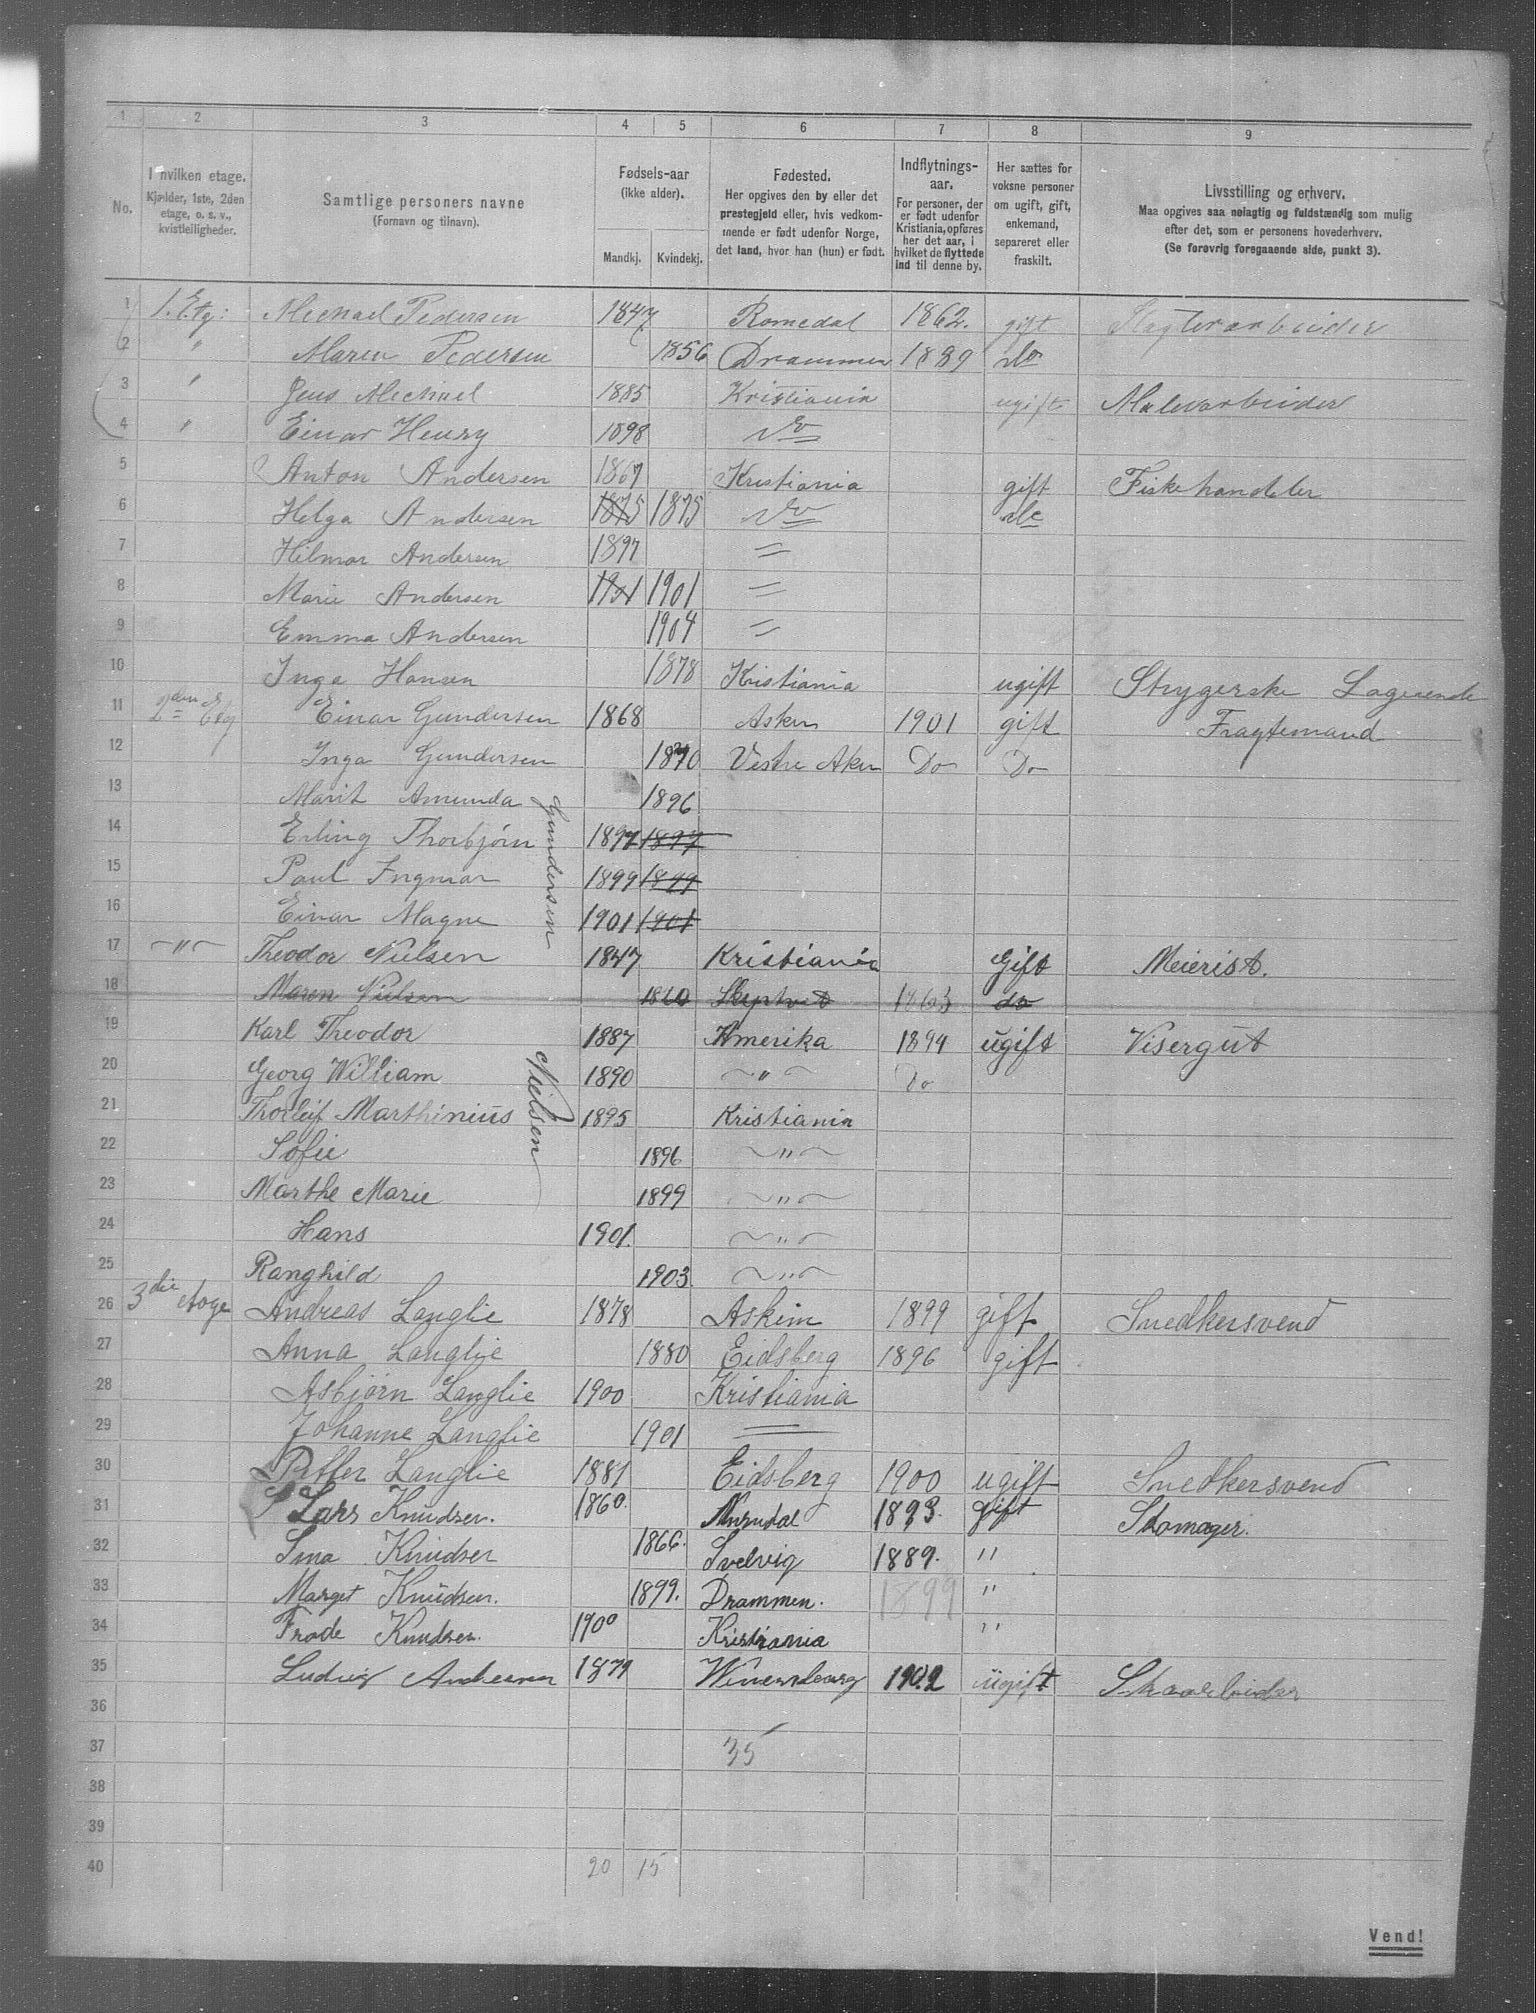 1 2 3 4 5 6 7 8 9
No. I hvilken etage. Kjælder, 1ste, 2den etage, o. s. v., kvistleiligheder. Samtlige personers navne (Fornavn og tilnavn). Fødsels-aar (ikke alder). Mandkj. Kvindekj. Fødested. Her opgives den by eller det prestegjeld eller, hvis vedkommende er født udenfor Norge, det land, hvor han (hun) er født. Indflytnings-aar. For personer, der er født udenfor Kristiania, opføres her det aar, i hvilket de flyttede ind til denne by. Her sættes for voksne personer om ugift, gift, enkemand, separeret eller fraskilt. Livsstilling og erhverv. Maa opgives saa nøiagtig og fuldstændig som mulig efter det, som er personens hovederhverv. (Se forøvrig foregaaende side, punkt 3).
1 1. Etg: Michael Pedersen 1847 Romedal 1862. gift Slagterarbeider
2 " Maren Pedersen 1856 Drammen 1889 do
3 " Jens Michael 1885 Kristiania ugift Malerarbeider
4 " Einar Henry 1898 do
5 Anton Andersen 1867 Kristiania gift Fiskehandeler
6 Helga Andersen 1875 1875 do do
7 Hilmar Andersen 1897 =
8 Marie Andersen 1901 1901 =
9 Emma Andersen 1904 =
10 Inga Hansen 1878 Kristiania ugift Strygerske Logerende
11 2den Etg Einar Gundersen 1868 Asker 1901 gift Fragtemand
12 Inga Gundersen 1870 Vestre Aker Do Do
13 Marit Amunda Gundersen 1896
14 Erling Thorbjörn 1897 1897
15 Paul Ingmar 1899 1899
16 Einar Magne 1901 1901
17 〃 Theodor Nielsen 1847 Kristiania Gift Meierist.
18 Maren Nielsen 1860 Skiptvet 1863 do
19 Karl Theodor 1887 Amerika 1894 ugift Visergut
20 Georg William Nielsen 1890 " Do
21 Thorleif Marthinius 1895 Kristiania
22 Sofie 1896 "
23 Marthe Marie 1899 "
24 Hans 1901. "
25 Ranghild 1903. "
26 3die Etage Andreas Langlie 1878 Askim 1899 gift Snedkersvend
27 Anna Langlie 1880 Eidsberg 1896 gift
28 Asbjörn Langlie 1900 Kristiania
29 Johanne Langlie 1901 =
30 Petter Langlie 1881 Eidsberg 1900 ugift Snedkersvend
31 Lars Knudsen. 1860. 1893. gift Skomager.
32 Knudsen 1866. Svelvig 1889. "
33 Marget Knudsen. 1899. Drammen. 1899 "
34 Frode Knudsen. 1900 Kristiania "
35 Ludvig Andersen 1879 1902 ugift Skoarbeider
36
37 35
38
39
40 20 15
Vend!